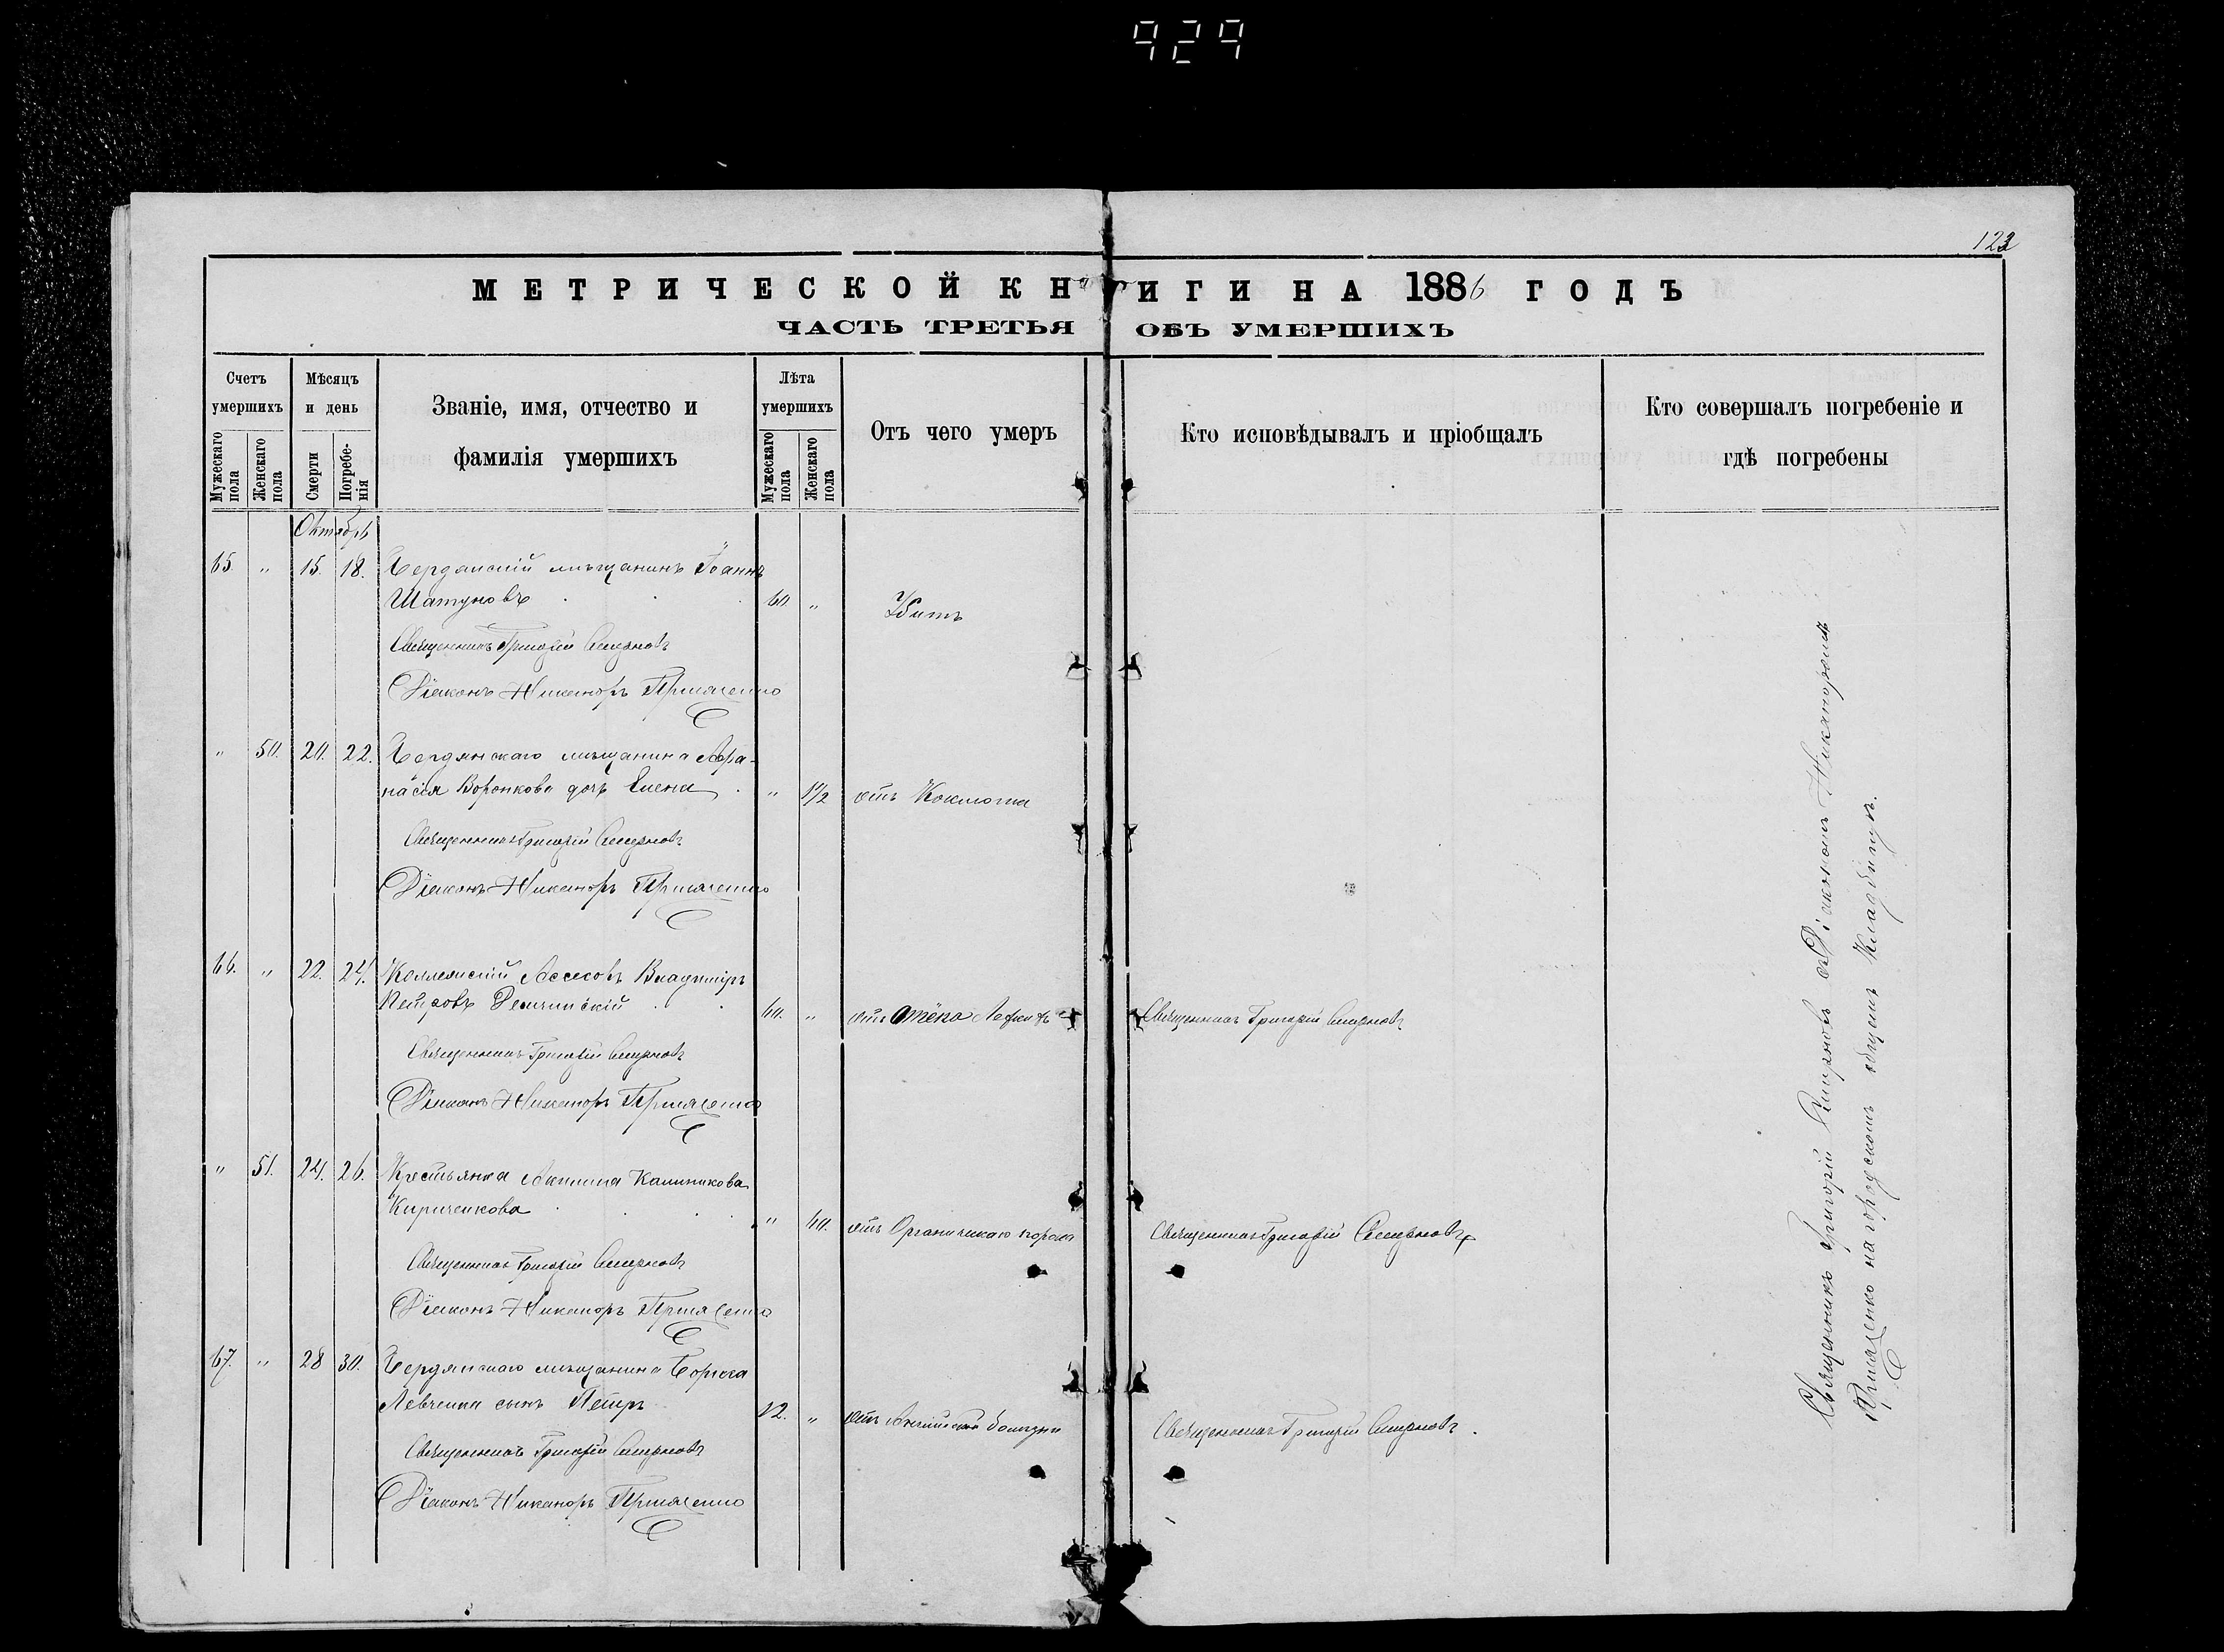 929
123
МЕТРИЧЕСКОЙ КНИГИ НА 1886 ГОДЪ
ЧАСТЬ ТРЕТЬЯ ОБЪ УМЕРШИХЪ
Счетъ умершихъ
Мужескаго пола
Женскаго пола
Мѣсяцъ и день
Смерти
Погребенія
Званіе, имя, отчество и фамилія умершихъ
Лѣта умершихъ
Мужескаго пола
Женскаго пола
Отъ чего умеръ
Кто исповѣдывалъ и пріобщалъ
Кто совершалъ погребеніе и гдѣ погребены
Октябрь
65. " 15. 18. Бердянскій мѣщанинъ Іоаннъ
Шатуновъ 60. " Убитъ
Священникъ Григорій Смирновъ
Діаконъ Никаноръ
" 50. 20. 22. Бердянскаго мѣщанина Афа-
насія Воронкова дочь Елена " 1½ отъ Коклюша
Священникъ Григорій Смирновъ
Діаконъ Никаноръ
66. " 22. 24. Владиміръ
Петровъ 60. " отъ Отёка Легкихъ Священникъ Григорій Смирновъ
Священникъ Григорій Смирновъ
Діаконъ Никаноръ
" 51. 24. 26. Крестьянка Акилина Калиникова
Кириченкова " 60. отъ Органическаго порока Священникъ Григорій Смирновъ
Священникъ Григорій Смирновъ
Діаконъ Никаноръ
67. " 28 30. Бердянскаго мѣщанина Бориса
Левченка сынъ Петръ 12. " отъ Англійской болѣзни Священникъ Григорій Смирновъ.
Священникъ Григорій Смирновъ
Діаконъ Никаноръ
Священникъ Григорій Смирновъ съ Діакономъ Никаноромъ
на городскомъ общемъ Кладбищѣ.